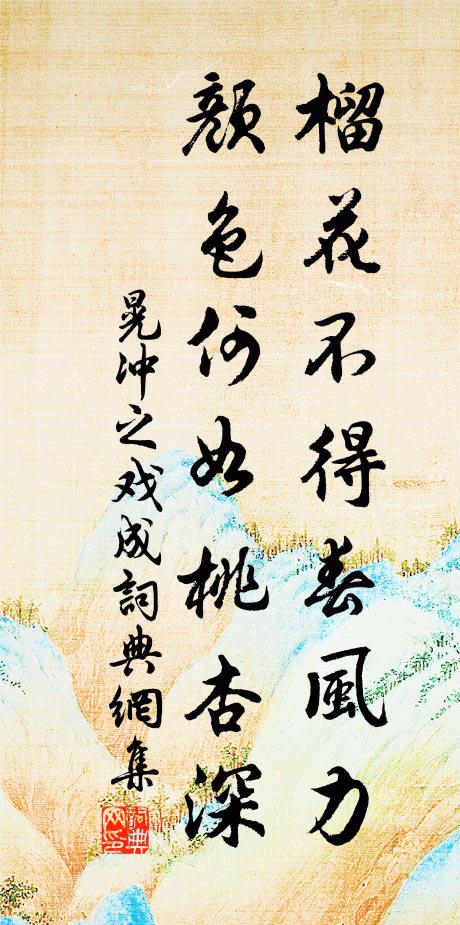 榴花不得春風力
顏色何如桃杏深
晁冲之戏成詞典網集
詞典
网印